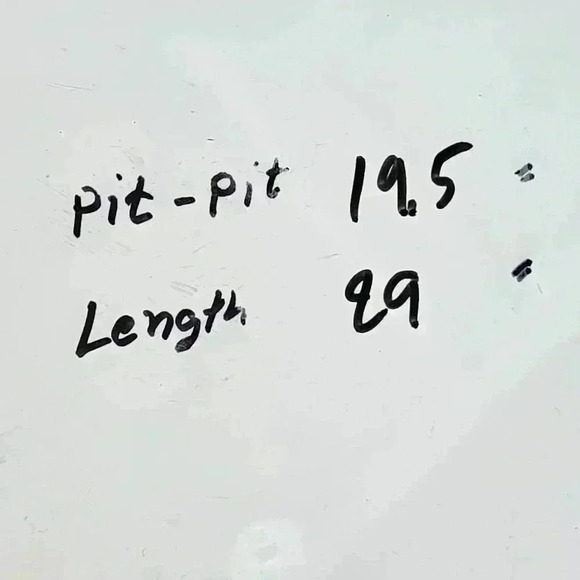 pit-pit 19.5 "
Length 29 "